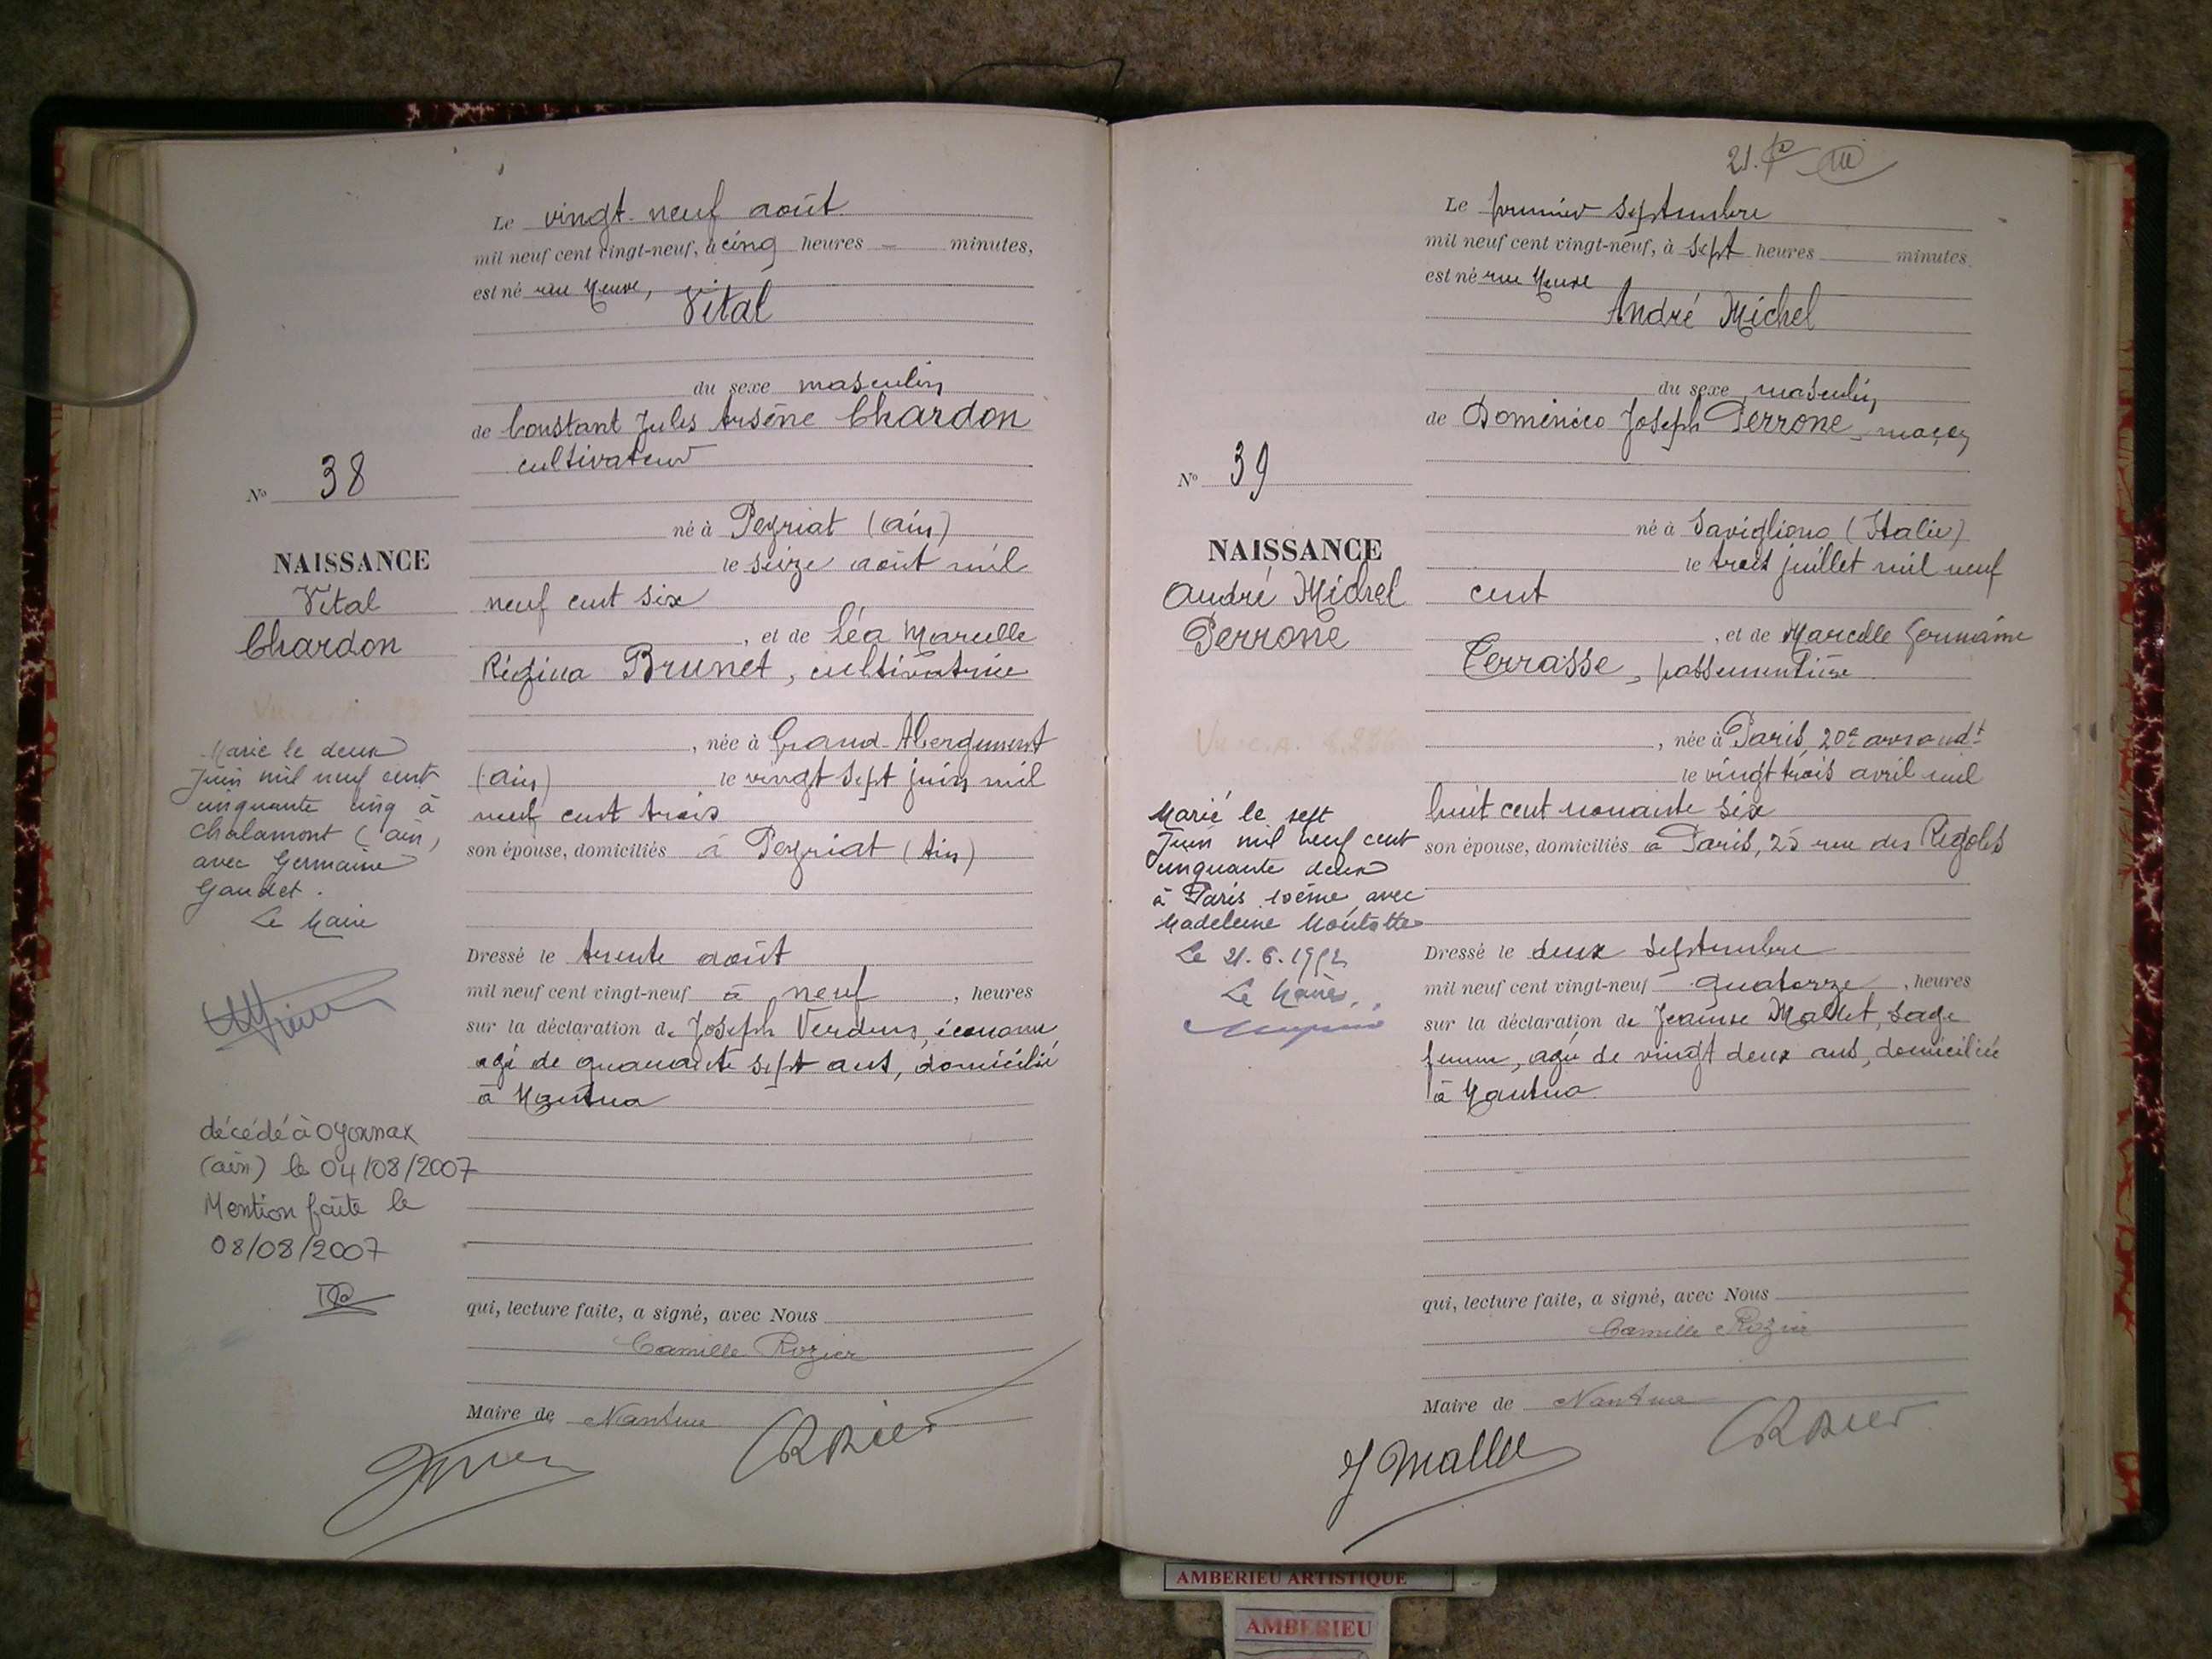 Le vingt-neuf août
mil neuf cent vingt-neuf, à cinq heures — minutes,
est né rue Neuve,
Vital
du sexe masculin
de Constant Jules Arsène Chardon
cultivateur
né à Peyriat (ain)
le seize août mil
neuf cent six
, et de Léa Marcelle
Régina Brunet, cultivatrice
, née à Grand-Abergement
(ain) le vingt sept juin mil
neuf cent trois
son épouse, domiciliés à Peyriat (Ain)
Dressé le trente août
mil neuf cent vingt-neuf à neuf , heures
sur la déclaration de Joseph économe
agé de quarante sept ans, domicilié
à Nantua
qui, lecture faite, a signé, avec Nous
Camille Rozier
Maire de Nantua
N° 38
NAISSANCE
Vital
Chardon
Marié le deux
Juin mil neuf cent
cinquante cinq à
Chalamont (ain)
avec Germaine
Gaudet.
Le Maire
décédé à Oyonnax
(ain) le 04/08/2007
Mention faite le
08/08/2007
21.
Le premier septembre
mil neuf cent vingt-neuf, à sept heures minutes
est né rue Neuve
André Michel
du sexe masculin
de Doménico Joseph Perrone, maçon
né à Savigliono (Italie)
le trois juillet mil neuf
cent
, et de Marcelle Germaine
Terrasse, passementière
, née à Paris, 20e arrondt
le vingt trois avril mil
huit cent nonante six
son épouse, domiciliés à Paris, 25 rue des Rigoles
Dressé le deux septembre
mil neuf cent vingt-neuf quatorze , heures
sur la déclaration de Jeanne Mallet, sage
femme, agée de vingt deux ans, domiciliée
à Nantua
qui, lecture faite, a signé, avec Nous
Camille Rozier
Maire de Nantua
J Mallet
N° 39
NAISSANCE
André Michel
Perrone
Marié le sept
Juin mil neuf cent
cinquante deux
à Paris 10ème avec
Madeleine
Le 21.6.1952
Le Maire,
AMBERIEU ARTISTIQUE
AMBERIEU